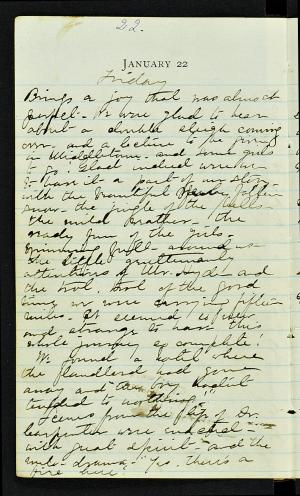 22.
JANUARY 22
Friday
Brings a joy that was almost
perfect. We were glad to hear
about a double sleigh coming
over and a lecture to be given
in Middletown - and some girls
to go! Glad indeed were
to have it a part of our story
with the beautiful
snow - the jingle of the bells
the mild weather - the
made fun of the girls -
around us
the little gentlemanly
attentions of Mr. Hyde and
the best, best of the good
time, we were carrying fifteen
miles. It seemed
and strange to have this
whole journey so complete!
We found a hotel where
the landlord had gone
away and the boy
to nothing,"
Scenes from the of Dr.
Carpenter were enacted
with great spirit - and the
drama - "Yes, there's a
fire here."